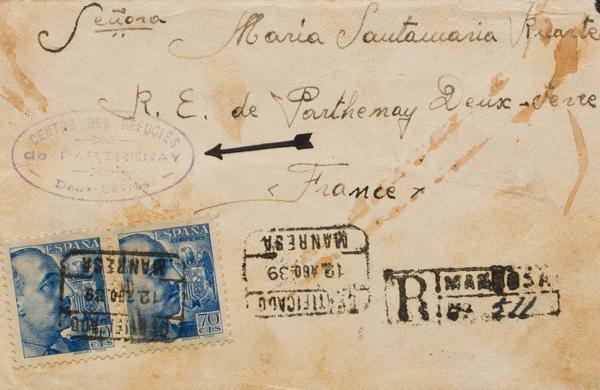 Señora
María Santamaria Ruarte
R. E. de Parthenay Deux-Sevre
CENTRE DES REFUGIÉS
de PARTHENAY
Deux-Sèvres
France
ESPAÑA
ESPAÑA
CORREOS
CERTIFICADO
12.AGO.39
MANRESA
CERTIFICADO
12.AGO.39
MANRESA
R MANRESA
511
70
CTS
70
CTS